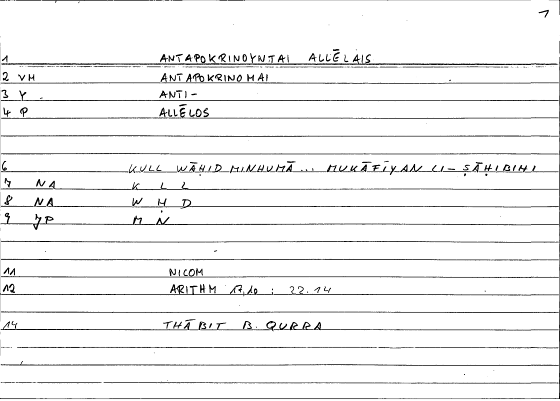 1
1 ANTAPOKRINOYNTAI ALLĒLAIS
2 VH ANTAPOKRINOMAI
3 Y ANTI-
4 P ALLĒLOS
6 KULL WĀḤID MINHUMĀ... MUKĀFIYAN LI-ṢĀḤIBIHI
7 NA K L L
8 NA W Ḥ D
9 JP M N
11 NICOM
12 ARITHM : 22.14
14 THĀBIT B. QURRA